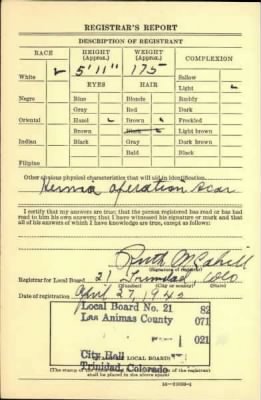 REGISTRAR'S REPORT
DESCRIPTION OF REGISTRANT
RACE HEIGHT (Approx.) WEIGHT (Approx.) COMPLEXION
White ✓ 5' 11" 175 Sallow
EYES HAIR Light ✓
Negro Blue Blonde Ruddy
Gray Red Dark
Oriental Hazel ✓ Brown ✓ Freckled
Brown Black Light brown
Indian Black Gray Dark brown
Bald Black
Filipino
Other obvious physical characteristics that will aid in identification
Hernia operation scar
I certify that my answers are true; that the person registered has read or has had
read to him his own answers; that I have witnessed his signature or mark and that
all of his answers of which I have knowledge are true, except as follows:
Ruth McCahill
(Signature of registrar)
Registrar for Local Board 21 Trinidad, Colo
(Number) (City or county)
Date of registration April 27, 1942
Local Board No. 21 82
Las Animas County 071
021
City Hall
Trinidad, Colorado
LOCAL BOARD)
(The stamp of
shall be placed in the above space.)